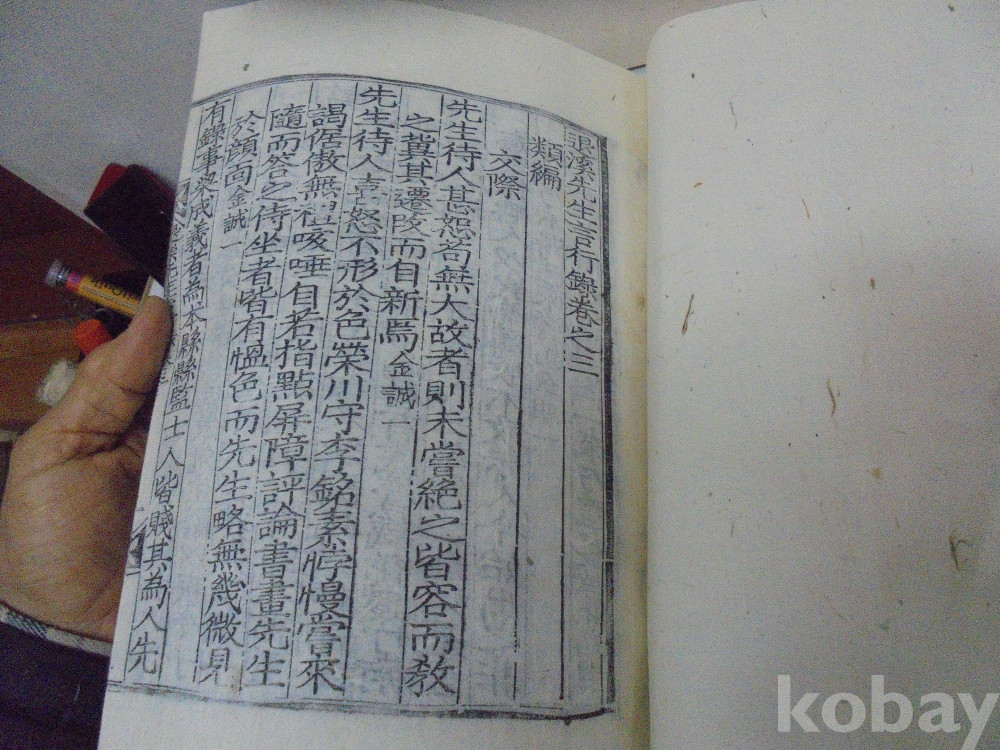 退溪先生言行錄卷之三
類編
交際
先生待人甚恕苟無大故者則未嘗絶之皆容而敎
之冀其遷陵而自新焉金誠一
先生待人喜怒不形於色榮川守李銘素悖慢嘗來
謁倨傲無 咳唾自若指點屏障評論書畫先生
隨而答之侍坐者皆有慍色而先生略無幾微見
於顔面金誠一
有錄事梁成義者為本縣縣監士人皆賤其為人先
kobay